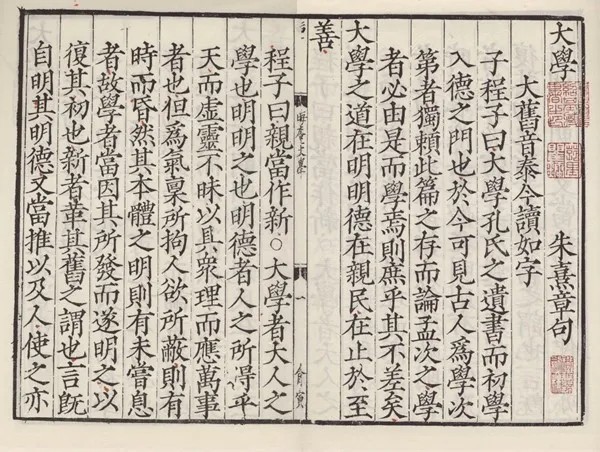 大學 朱熹章句
大舊音泰今讀如字
子程子曰大學孔氏之遺書而初學
入德之門也於今可見古人爲學次
第者獨賴此篇之存而論孟次之學
者必由是而學焉則庶乎其不差矣
大學之道在明明德在親民在止於至
善
一
程子曰親當作新○大學者大人之
學也明明之也明德者人之所得乎
天而虛靈不昧以具衆理而應萬事
者也但爲氣稟所拘人欲所蔽則有
時而昏然其本體之明則有未嘗息
者故學者當因其所發而遂明之以
復其初也新者革其舊之謂也言旣
自明其明德又當推以及人使之亦